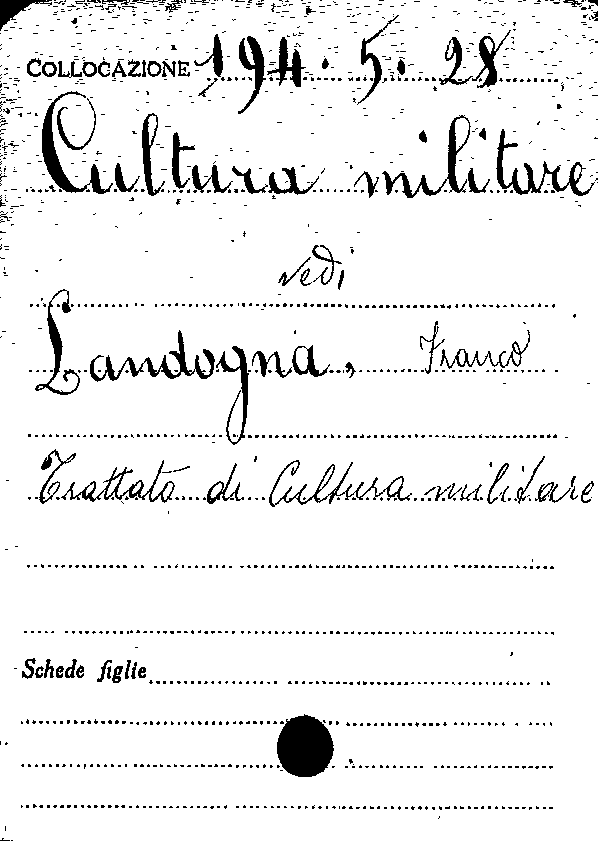 COLLOCAZIONE 194. 5. 28
Cultura militare
vedi
Landogna, Franco
Trattato di Cultura militare
Schede figlie